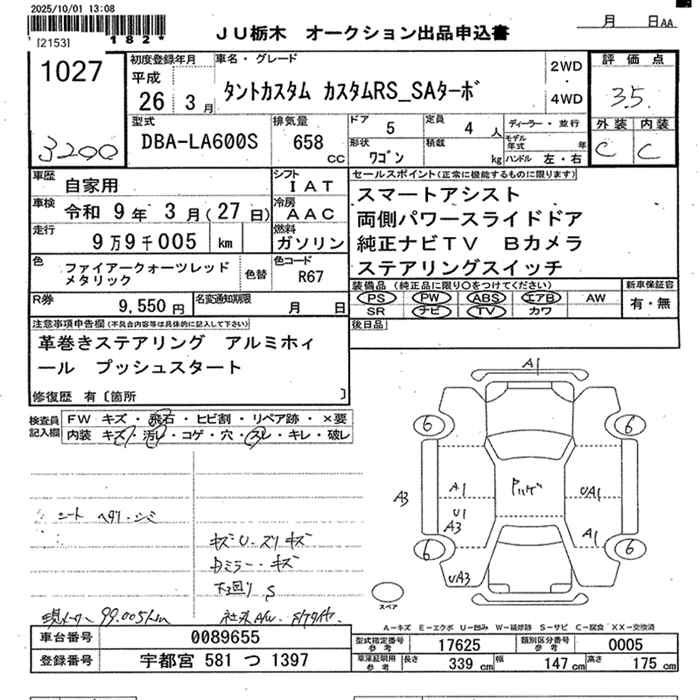 2025/10/01 13:08
[2153]
182*
JU栃木 オークション出品申込書
月 日 AA
1027
3200
初度登録年月
平成
26 3月
車名・グレード
タントカスタム カスタムRS_SAターボ
2WD
・
4WD
評価点
3.5
外装 内装
C C
型式
DBA-LA600S
排気量
658
CC
ドア 5
定員 4 人
形状 ワゴン
積載 kg
ディーラー・並行
モデル年式 年
ハンドル 左・右
車歴 自家用
シフト IAT
車検 令和 9年 3月(27日)
冷房 AAC
走行 9万9千005 km
燃料 ガソリン
色 ファイアークォーツレッド
メタリック
色替
色コード R67
R券 9,550円
名変通知期限 月 日
セールスポイント(正常に機能するものに限ります)
スマートアシスト
両側パワースライドドア
純正ナビTV Bカメラ
ステアリングスイッチ
装備品(純正品に限り○をつけてください)
PS PW ABS エアB AW
SR ナビ TV カワ
新車保証書
有・無
後日品
注意事項申告欄(不具合内容等は具体的に記入して下さい)
革巻きステアリング アルミホイ
ール プッシュスタート
修復歴 有〔箇所 〕
検査員記入欄
FW キズ・飛石・ヒビ割・リペア跡・×要
内装 キズ・汚レ・コゲ・穴・スレ・キレ・破レ
シート ヘタリ・シミ
キズU.スリキズ
ミラー・キズ
下回り S
99.005km
社外AW.
A1
6 6
A3
A1
U1
A3
UA3
UA1
A1
6 6
スペア
A-キズ E-エクボ U-凹み W-補修跡 S-サビ C-腐食 XX-交換済
車台番号 0089655
型式指定番号参考 17625
類別区分番号参考 0005
登録番号 宇都宮 581 つ 1397
車庫証明用参考
長さ 339 cm
幅 147 cm
高さ 175 cm